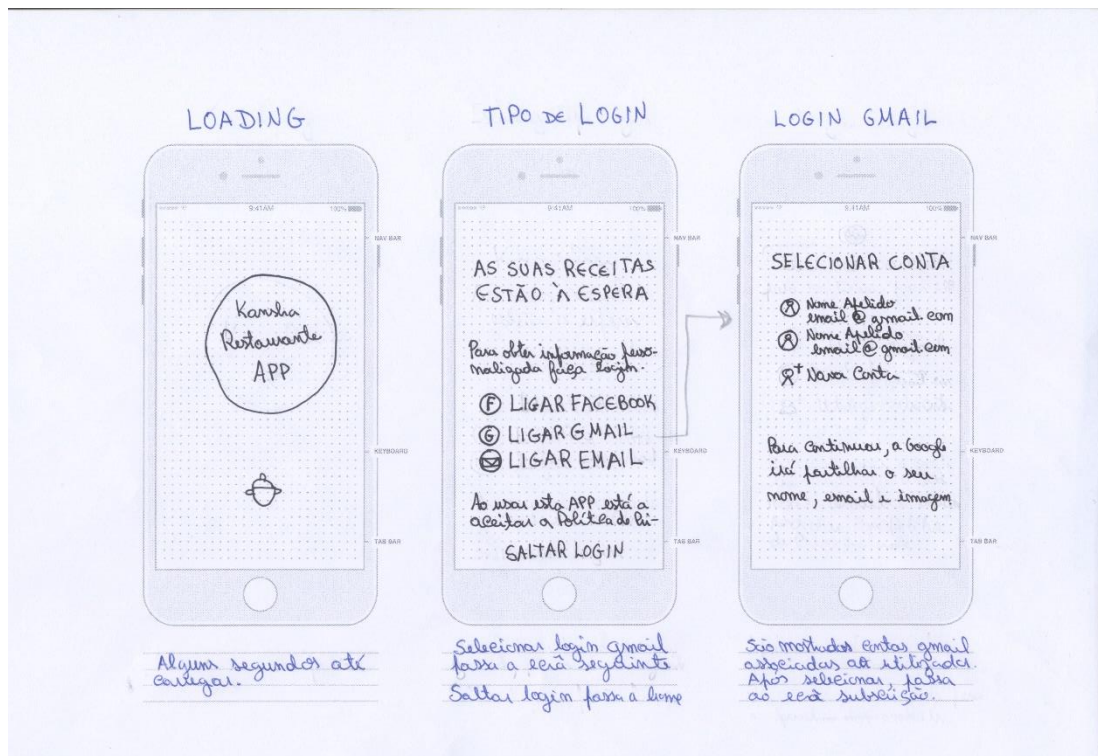 LOADING
9:41AM
100%
NAV BAR
Kansha
Restaurante
APP
KEYBOARD
TAB BAR
Alguns segundos até
carregar.
TIPO DE LOGIN
9:41AM
100%
NAV BAR
AS SUAS RECEITAS
ESTÃO À ESPERA
Para obter informação perso-
nalizada faça login.
F LIGAR FACEBOOK
G LIGAR GMAIL
LIGAR EMAIL
KEYBOARD
Ao usar esta APP está a
aceitar a Política de Pri-
SALTAR LOGIN
TAB BAR
Selecionar login gmail
passa a ecrã seguinte
Saltar login passa à home
LOGIN GMAIL
9:41AM
100%
NAV BAR
SELECIONAR CONTA
Nome Apelido
email@gmail.com
Nome Apelido
email@gmail.com
Nova Conta
KEYBOARD
Para continuar, a Google
irá partilhar o seu
nome, email e imagem
TAB BAR
São mostradas contas gmail
associadas ao utilizador.
Após selecionar, passa
ao ecrã subscrição.